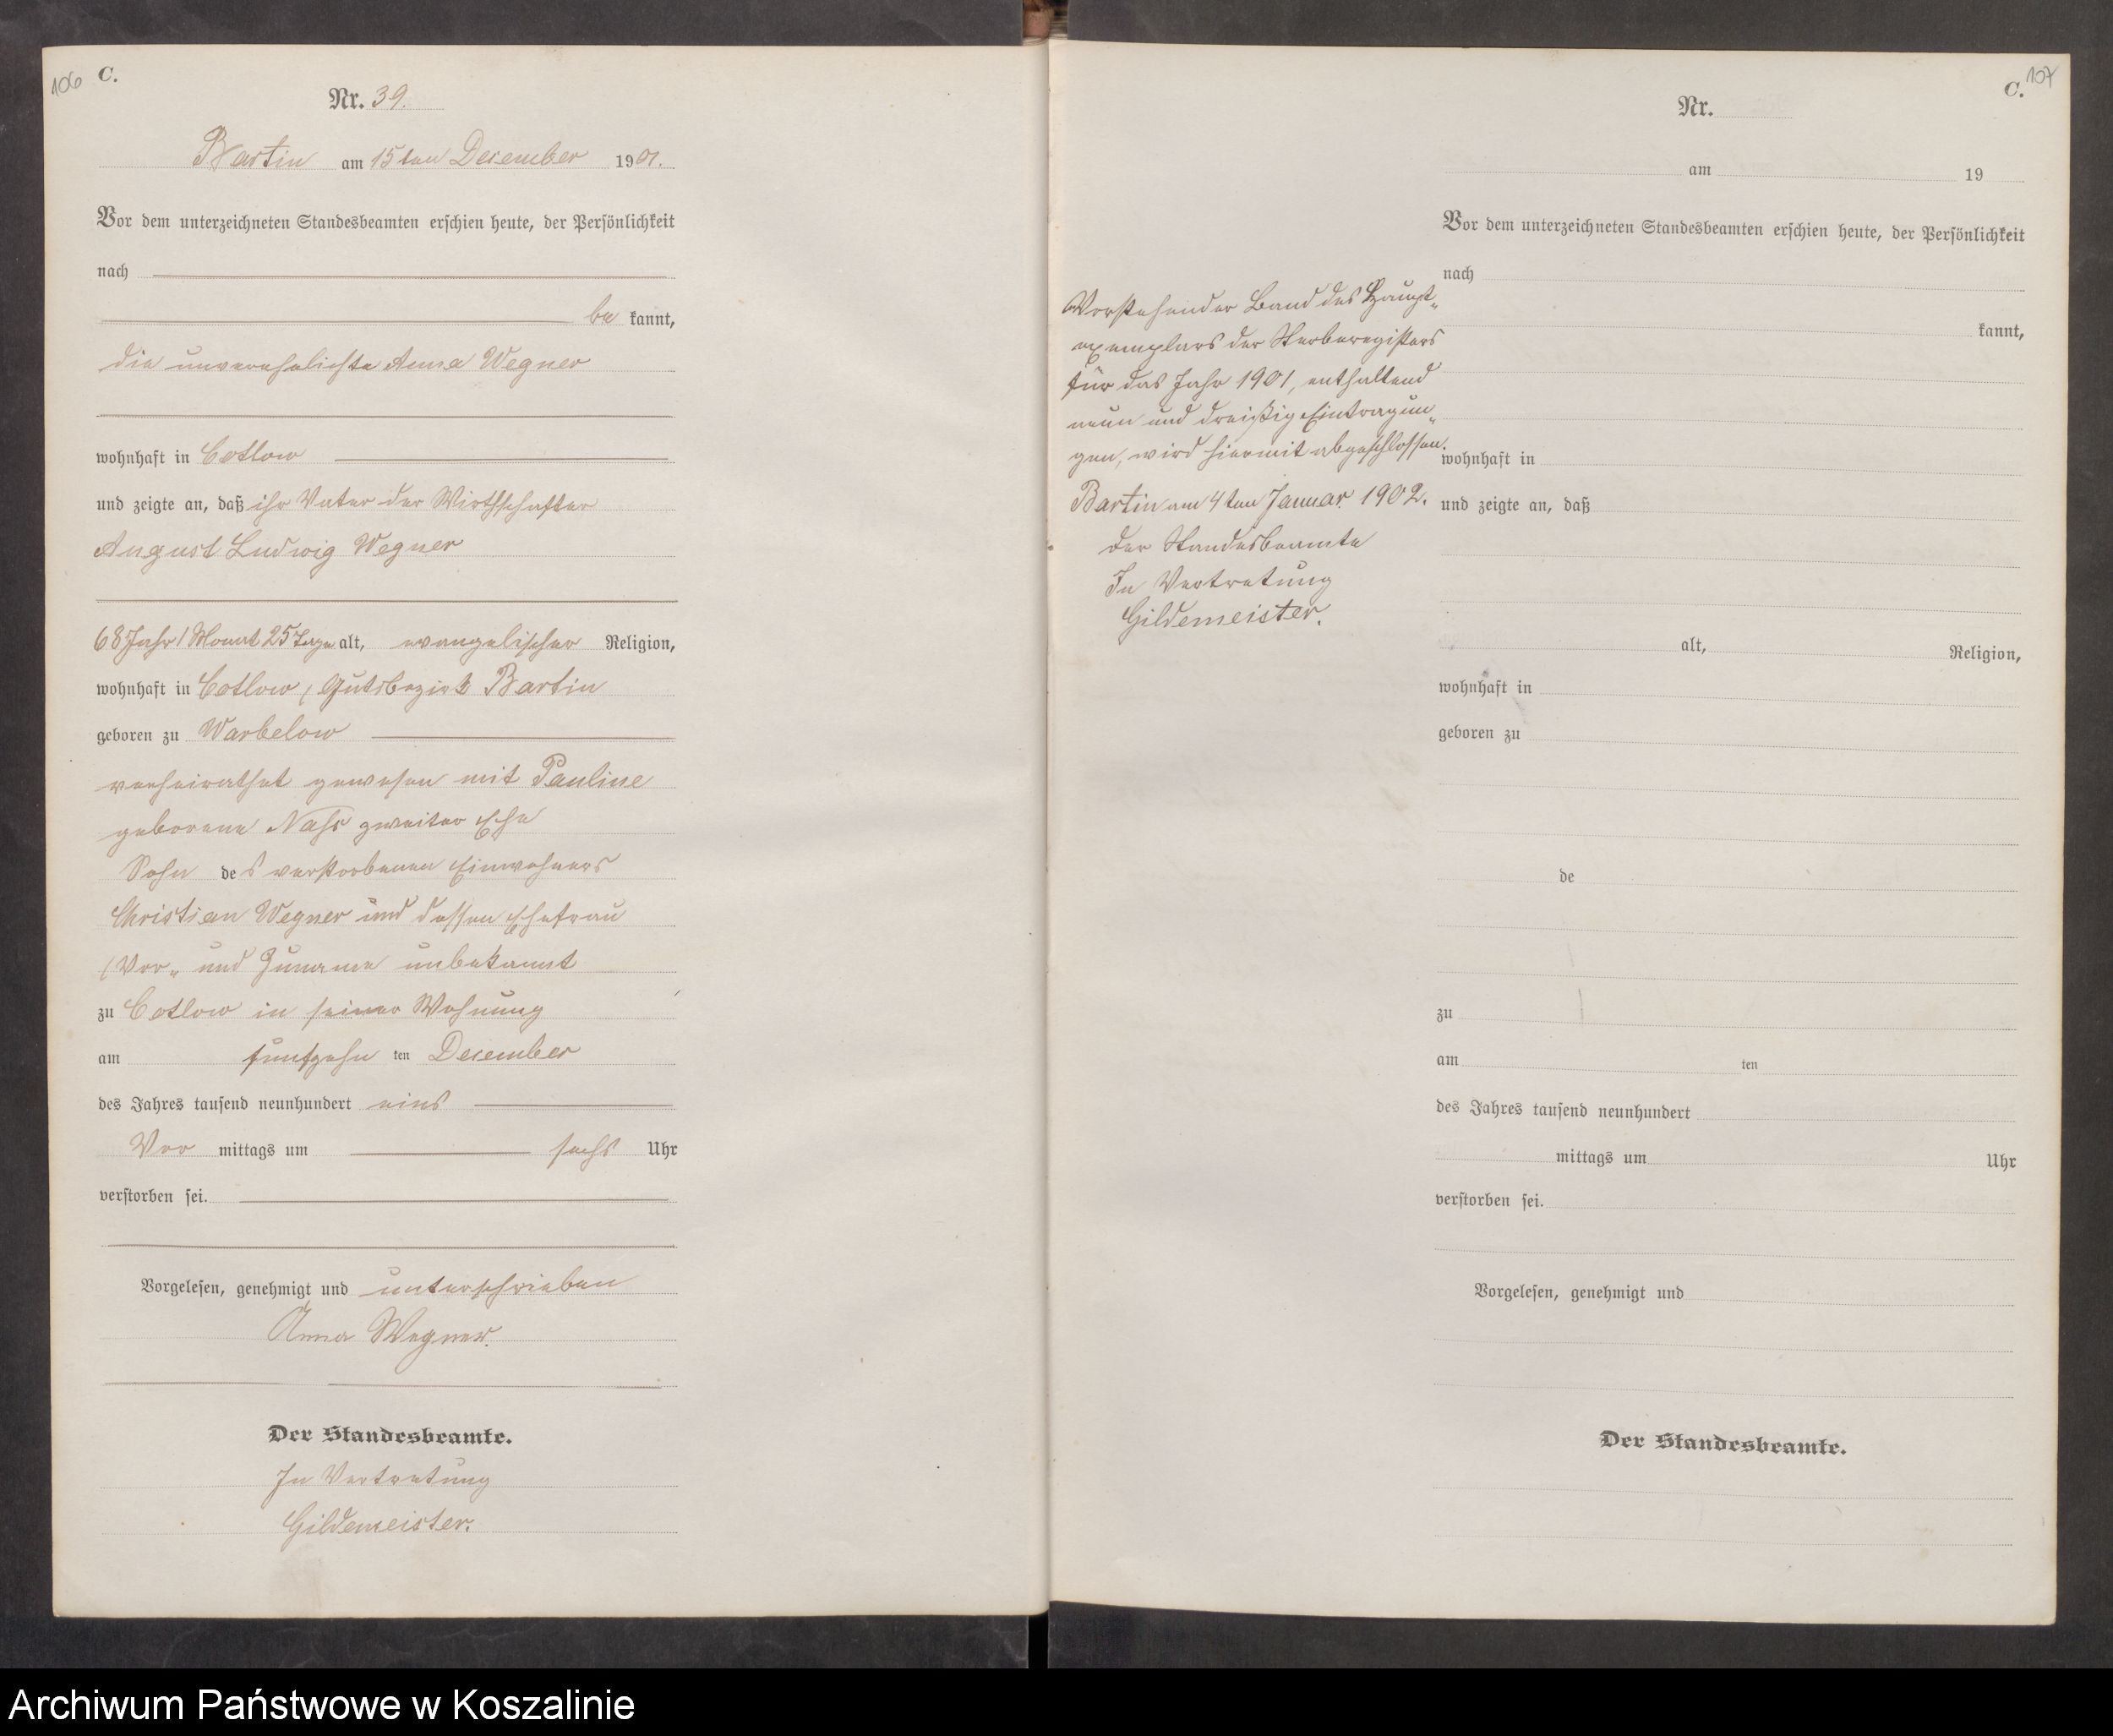 106
C.
Nr. 39.
Bartin am 15ten December 1901.
Vor dem unterzeichneten Standesbeamten erschien heute, der Persönlichkeit
nach
be kannt,
die unverehelichte Anna Wegner
wohnhaft in Cotlow
und zeigte an, daß ihr Vater der Wirthschafter
August Ludwig Wegner
68 Jahr 1 Monat 25 Tage alt, evangelischer Religion,
wohnhaft in Cotlow, Gutsbezirk Bartin
geboren zu Warbelow
verheirathet gewesen mit Pauline
geborene zweiter Ehe
Sohn des verstorbenen Einwohners
Christian Wegner und dessen Ehefrau
(Vor- und Zuname unbekannt
zu Cotlow in seiner Wohnung
am fünfzehn ten December
des Jahres tausend neunhundert eins
Vor mittags um sechs Uhr
verstorben sei.
Vorgelesen, genehmigt und unterschrieben
Anna Wegner.
Der Standesbeamte.
In Vertretung
Gildemeister.
107
C.
Nr.
am 19
Vor dem unterzeichneten Standesbeamten erschien heute, der Persönlichkeit
nach
kannt,
Vorstehender Band des Haupt-
exemplars der Sterberegisters
für das Jahr 1901, enthaltend
neun und dreißig Eintragun-
gen, wird hiermit abgeschlossen.
Bartin am 4ten Januar 1902.
Der Standesbeamte
In Vertretung
Gildemeister.
wohnhaft in
und zeigte an, daß
alt, Religion,
wohnhaft in
geboren zu
de
zu
am ten
des Jahres tausend neunhundert
mittags um Uhr
verstorben sei.
Vorgelesen, genehmigt und
Der Standesbeamte.
Archiwum Państwowe w Koszalinie